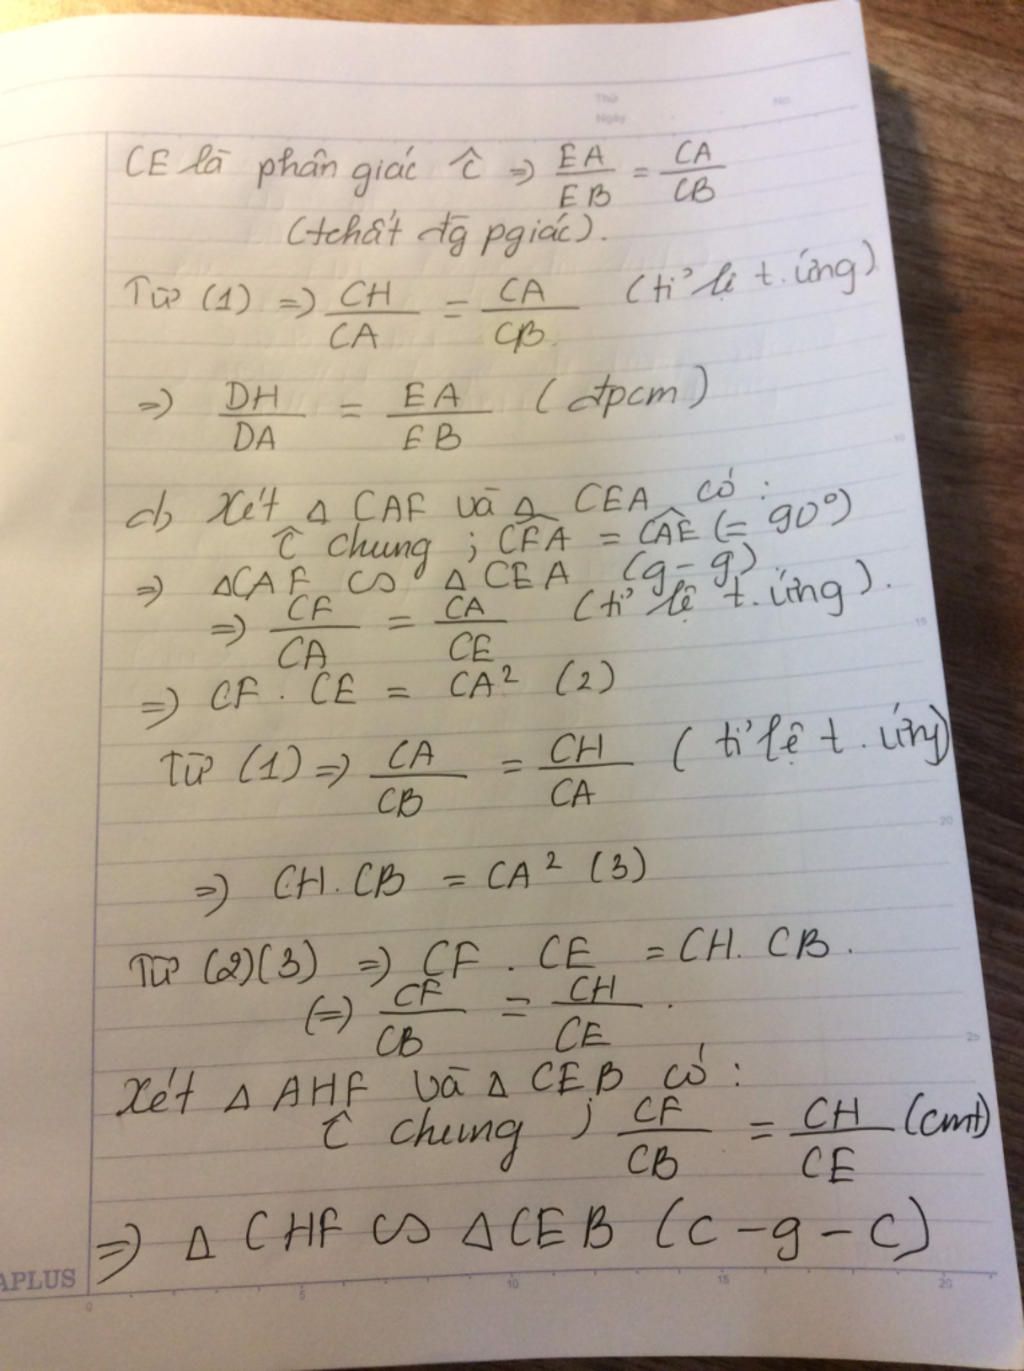 Thứ
Ngày
No.
CE là phân giác Ĉ => EA/EB = CA/CB
(tchất đg pgiác).
Từ (1) => CH/CA = CA/CB (tỉ lệ t. ứng)
=> DH/DA = EA/EB (đpcm)
d) Xét Δ CAF và Δ CEA có:
Ĉ chung ; CFA = CAE (= 90°)
=> ΔCAF ∽ ΔCEA (g-g)
=> CF/CA = CA/CE (tỉ lệ t. ứng).
=> CF . CE = CA² (2)
Từ (1) => CA/CB = CH/CA (tỉ lệ t. ứng)
=> CH. CB = CA² (3)
Từ (2)(3) => CF . CE = CH. CB.
(=) CF/CB = CH/CE .
Xét Δ AHF và Δ CEB có:
Ĉ chung ; CF/CB = CH/CE (cmt)
=> Δ CHF ∽ ΔCEB (c-g-c)
APLUS
0 5 10 15 20
10
15
20
25